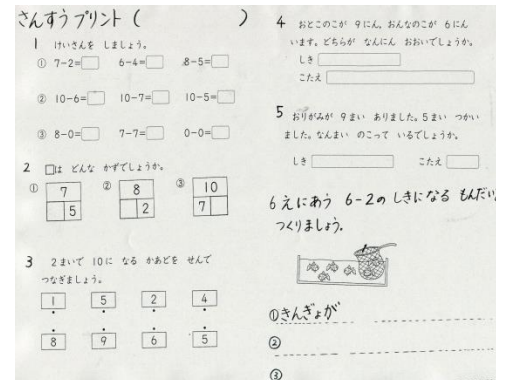 さんすうプリント (　　　　　)
1 けいさんを しましょう。
① 7-2=□ 6-4=□ 8-5=□
② 10-6=□ 10-7=□ 10-5=□
③ 8-0=□ 7-7=□ 0-0=□
2 □は どんな かずでしょうか。
① ② ③
7 8 10
5 2 7
3 2まいで 10に なる かあどを せんで
つなぎましょう。
1 5 2 4
8 9 6 5
4 おとこのこが 9にん、おんなのこが 6にん
います。どちらが なんにん おおいでしょうか。
しき
こたえ
5 おりがみが 9まい ありました。5まい つかい
ました。なんまい のこって いるでしょうか。
しき こたえ
6 えにあう 6-2の しきになる もんだい
つくりましょう。
①きんぎょが
②
③